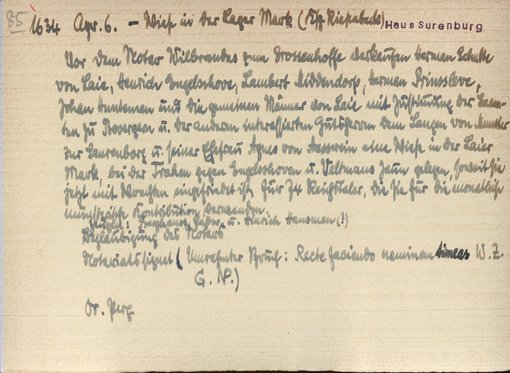 85
1634 Apr. 6. – Wiese in der Lager Mark (Ksp. Riesenbeck) Haus Surenburg
Vor dem Notar Wilbrandes zum Drostenhoffe verkaufen Herman Schulte
von Laie, Henrich Engelshove, Lambert Middendorp, Herman Prinssleve,
Johan Hunteman und die gemeinen Männer von Laie mit Zustimmung der Beam-
ten zu Bevergern u. der anderen interessierten Gutsherren dem Langen von Munster
zur Surenborg u. seiner Ehefrau Agnes von eine Wiese in der Laier
Mark, bei der gegen Engelshoven u. Veltmans Zaun gelegen, soweit sie
jetzt mit eingefriedet ist, für 74 Reichstaler, die sie für die monatliche
münsterische Kontribution verwenden.
u. Hinrich Hansman (?)
Beglaubigung des Notars
Notariatssignet (Umrahmter Spruch: Recte faciendo neminem timeas W. Z.
G. N.)
Or. Perg.